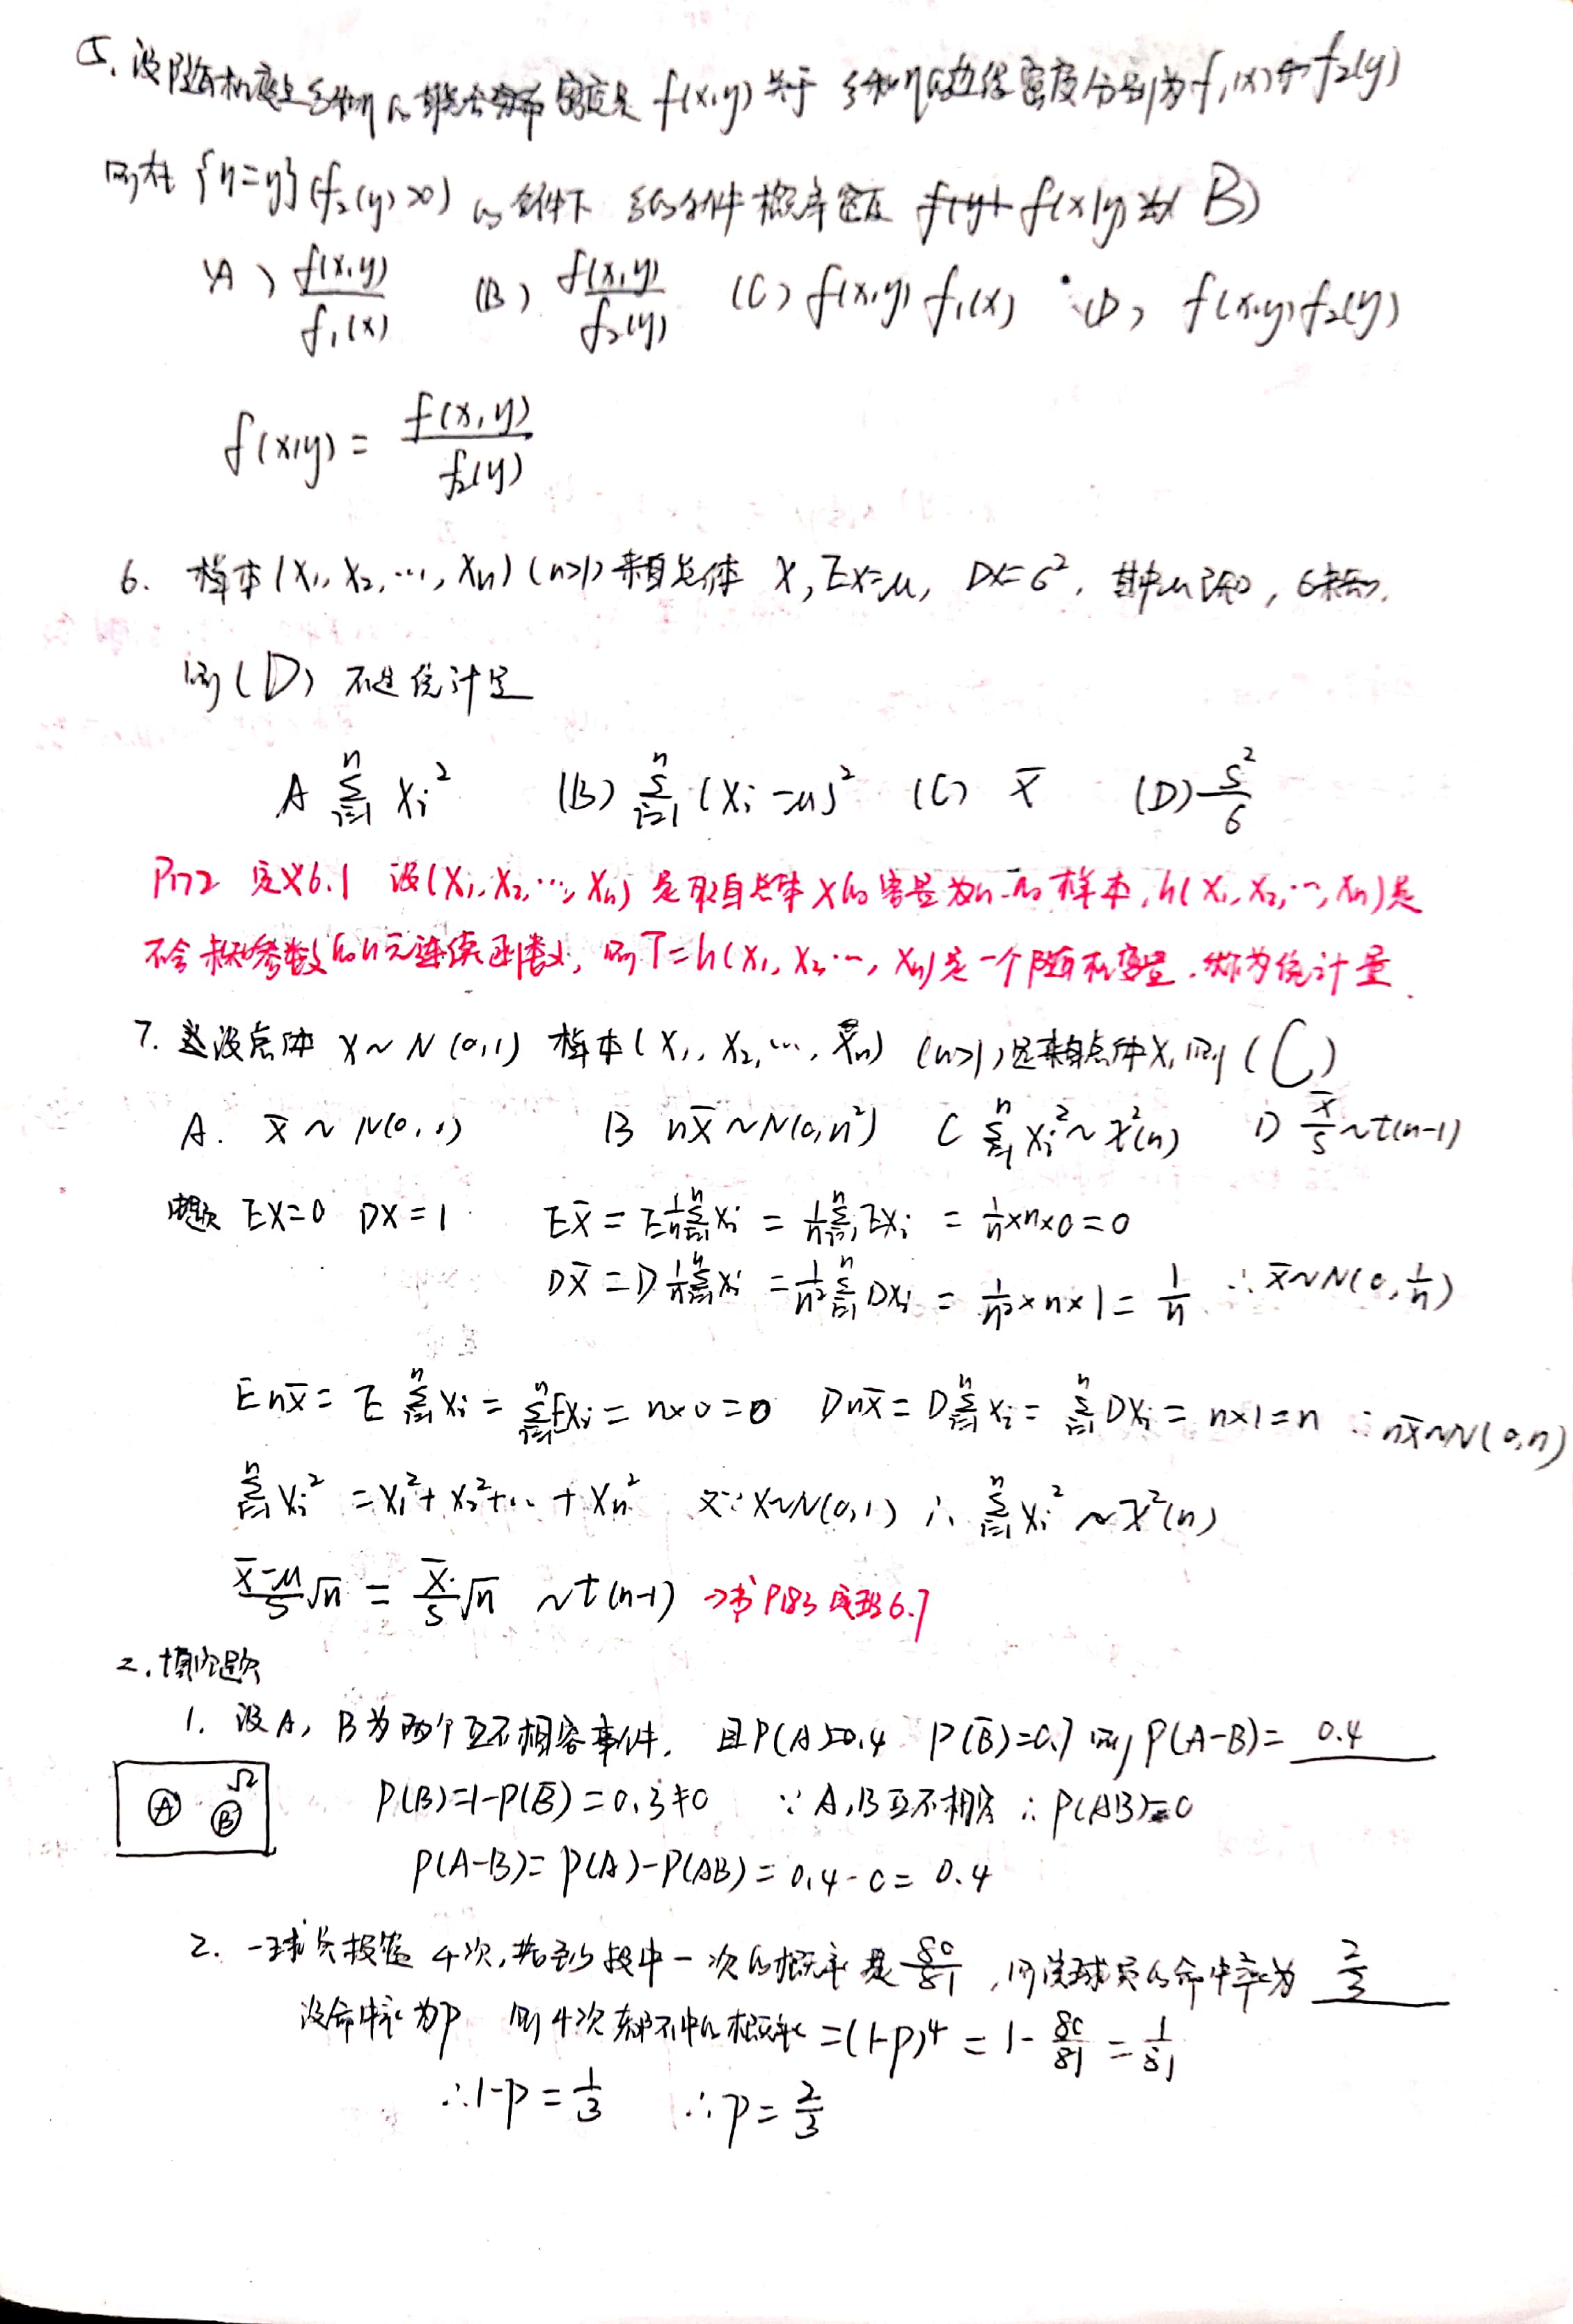 5. 设随机变量ξ和η的联合分布密度是 f(x,y) 关于 ξ和η的边缘密度分别为f₁(x)和f₂(y)
则在 {η=y}(f₂(y)>0) 的条件下 ξ的条件概率密度 f(x|y)为( B )
(A) f(x,y)/f₁(x) (B) f(x,y)/f₂(y) (C) f(x,y) f₁(x) (D) f(x,y)f₂(y)
f(x|y) = f(x,y)/f₂(y)
6. 样本(X₁, X₂, …, Xn) (n>1) 来自总体 X, EX=μ, DX=б², 其中μ已知, б未知.
则 (D) 不是统计量
A Σⁿᵢ₌₁ Xᵢ² (B) Σⁿᵢ₌₁ (Xᵢ-μ)² (C) X̄ (D) S²/б
P172 定义6.1 设(X₁, X₂, …, Xn) 是取自总体X的容量为n的样本, h(X₁, X₂, …, Xn)是
不含未知参数的n元连续函数, 则T=h(X₁, X₂ …, Xn)是一个随机变量. 称为统计量.
7. 设总体 X~N(0,1) 样本(X₁, X₂, …, Xn) (n>1)是来自总体X, 则 (C)
A. X̄ ~ N(0,1) B nX̄ ~N(0,n²) C Σⁿᵢ₌₁ Xᵢ² ~ χ²(n) D X̄/S ~ t(n-1)
由题 EX=0 DX=1 EX̄ = E 1/n Σⁿᵢ₌₁ Xᵢ = 1/n Σⁿᵢ₌₁ EXᵢ = 1/n×n×0=0
DX̄ = D 1/n Σⁿᵢ₌₁ Xᵢ = 1/n² Σⁿᵢ₌₁ DXᵢ = 1/n² × n × 1 = 1/n ∴ X̄~N(0, 1/n)
EnX̄ = E Σⁿᵢ₌₁ Xᵢ = Σⁿᵢ₌₁ EXᵢ = n×0=0 DnX̄ = D Σⁿᵢ₌₁ Xᵢ = Σⁿᵢ₌₁ DXᵢ = n×1=n ∴ nX̄~N(0,n)
Σⁿᵢ₌₁ Xᵢ² = X₁²+X₂²+…+Xn² 又∵X~N(0,1) ∴ Σⁿᵢ₌₁ Xᵢ² ~χ²(n)
(X̄-μ)/S √n = X̄/S √n ~t(n-1) →书P183 定理6.7
二.填空题
1. 设A, B为两个互不相容事件. 且P(A)=0.4 P(B̄)=0.7 则 P(A-B)= 0.4
A B Ω
P(B)=1-P(B̄)=0.3≠0 ∵A,B互不相容 ∴P(AB)=0
P(A-B)=P(A)-P(AB)=0.4-0=0.4
2. 一球员投篮4次, 若至少投中一次的概率是 80/81, 则该球员的命中率为 2/3
设命中率为p 则4次都不中的概率=(1-p)⁴ = 1- 80/81 = 1/81
∴1-p = 1/3 ∴p = 2/3